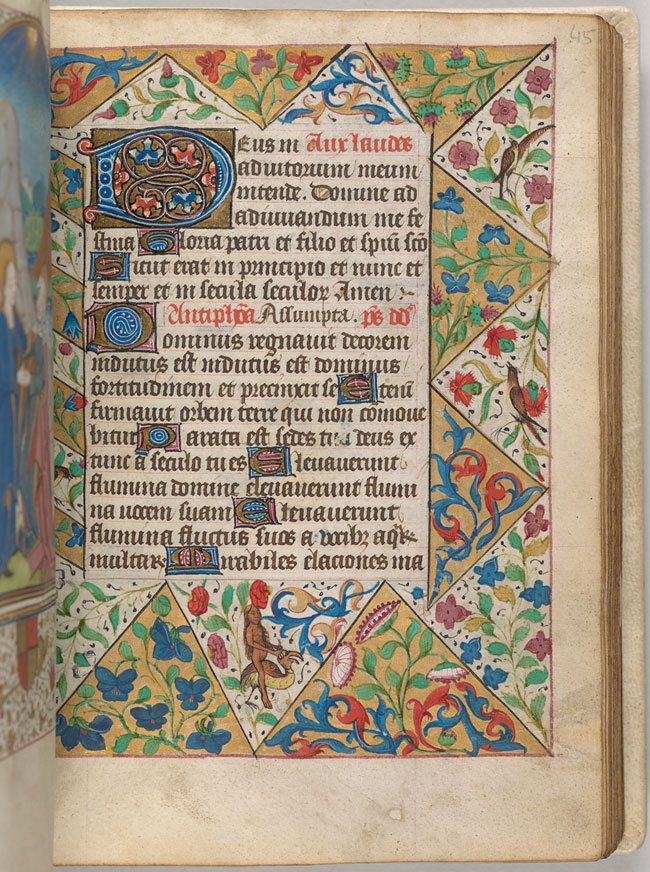 45
Deus in Aux laudes
adiutorium meum
intende. Domine ad
adiuuandum me fe
stina Gloria patri et filio et spiū scō
Sicut erat in principio et nunc et
semper et in secula seculor Amen
Antiphōa Assumpta. ps dd
Dominus regnauit decorem
indutus est indutus est dominus
fortitudinem et precinxit se Etenī
firmauit orbem terre qui non cōmoue
bitur Parata est sedes tua deus ex
tunc a seculo tu es Eleuauerunt
flumina domine eleuauerunt flumi
na uocem suam Eleuauerunt
flumina fluctus suos a uocibꝫ aqꝝ
multaꝝ. Mirabiles elaciones ma